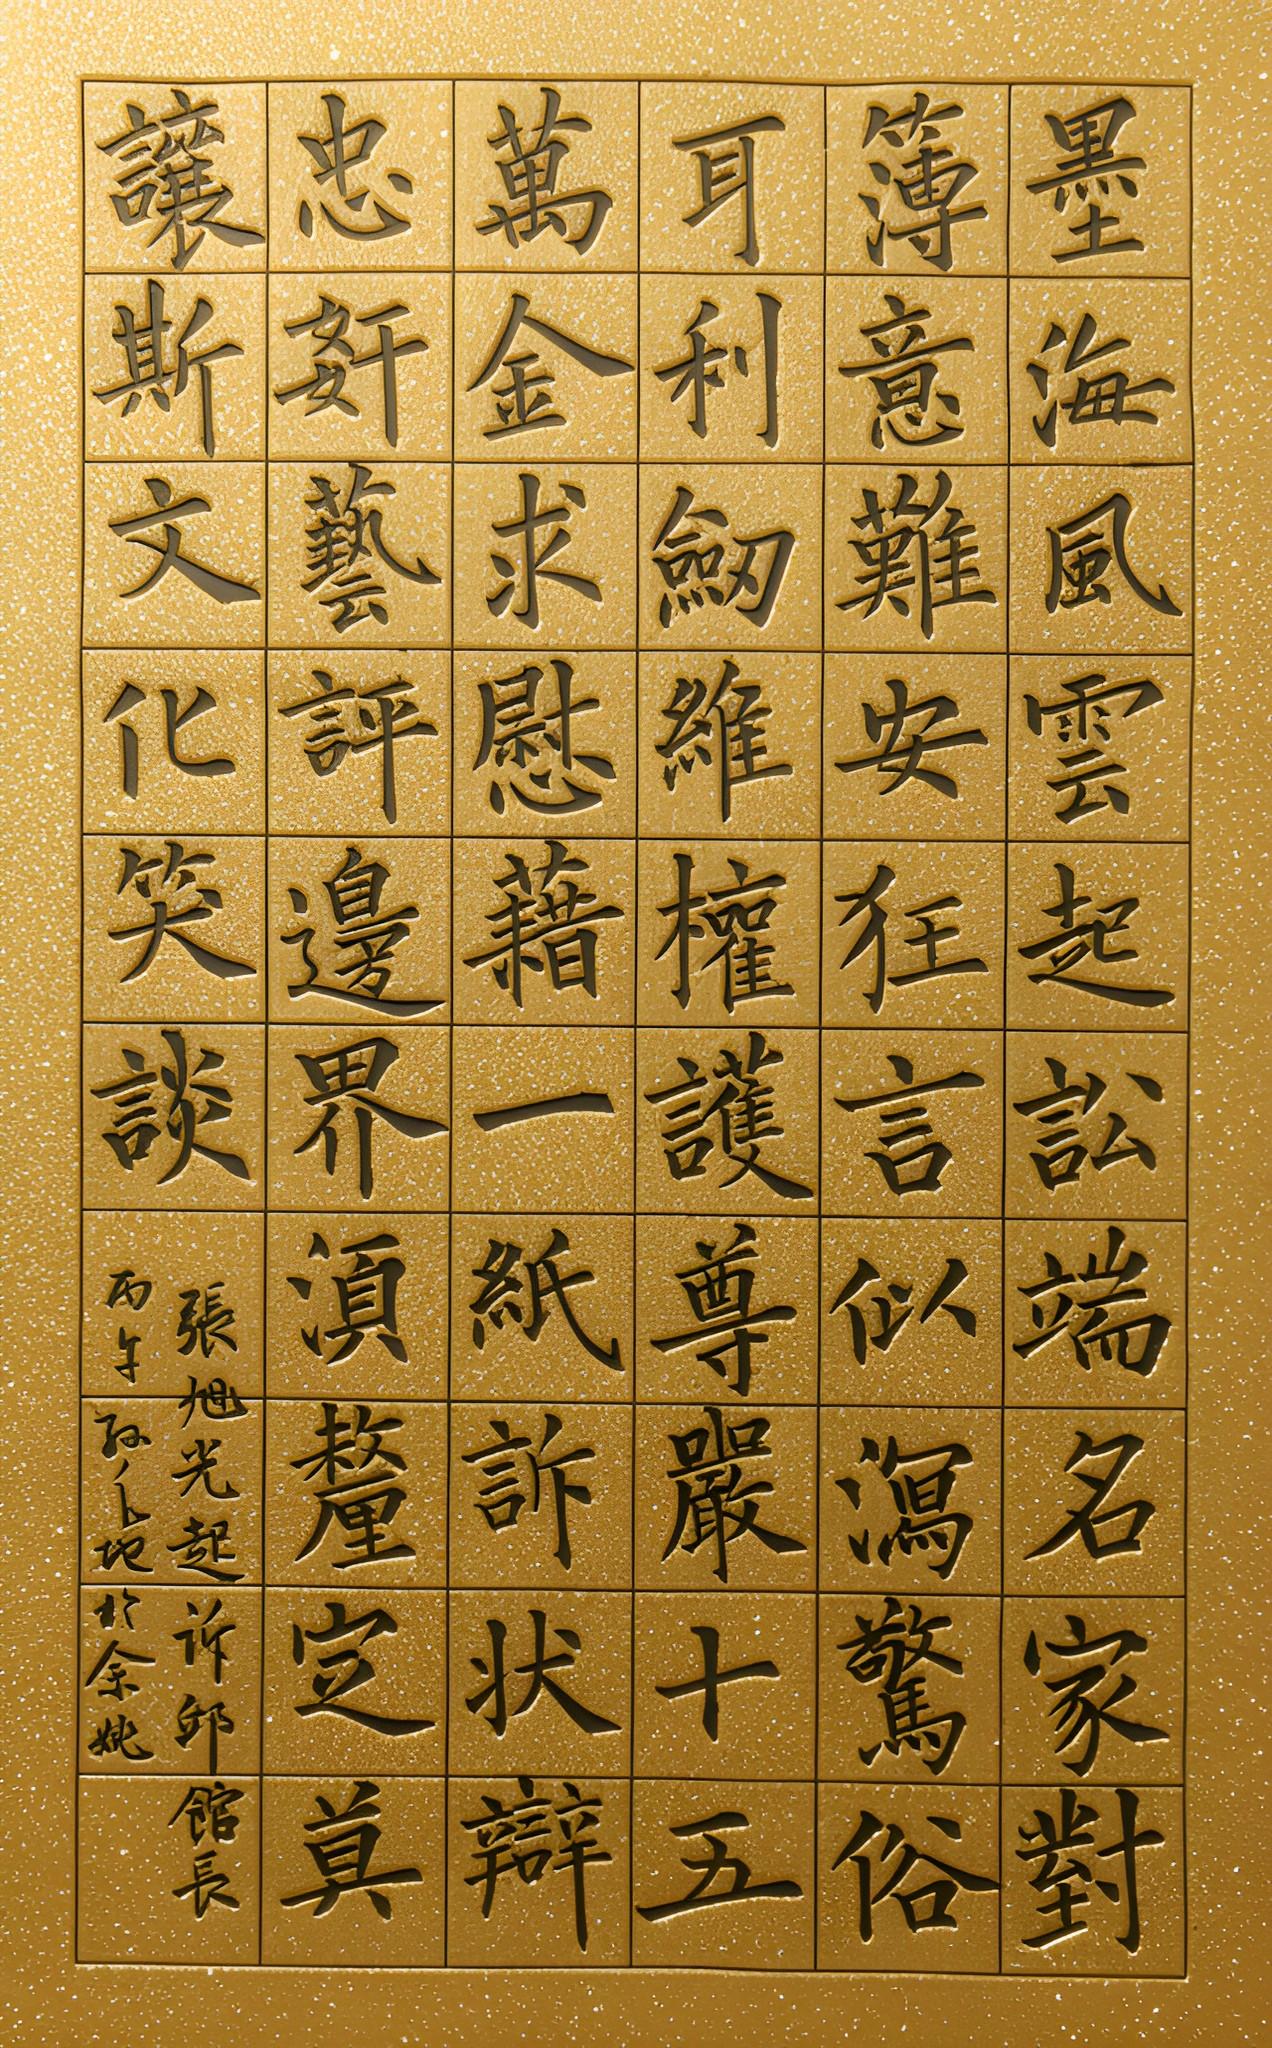 墨海風雲起訟端名家對
簿意難安狂言似瀉驚俗
耳利劒維權護尊嚴十五
萬金求慰藉一紙訴状辯
忠奸藝評邊界湏釐定莫
讓斯文化笑談
張旭光起诉邱館長
丙午於余姚